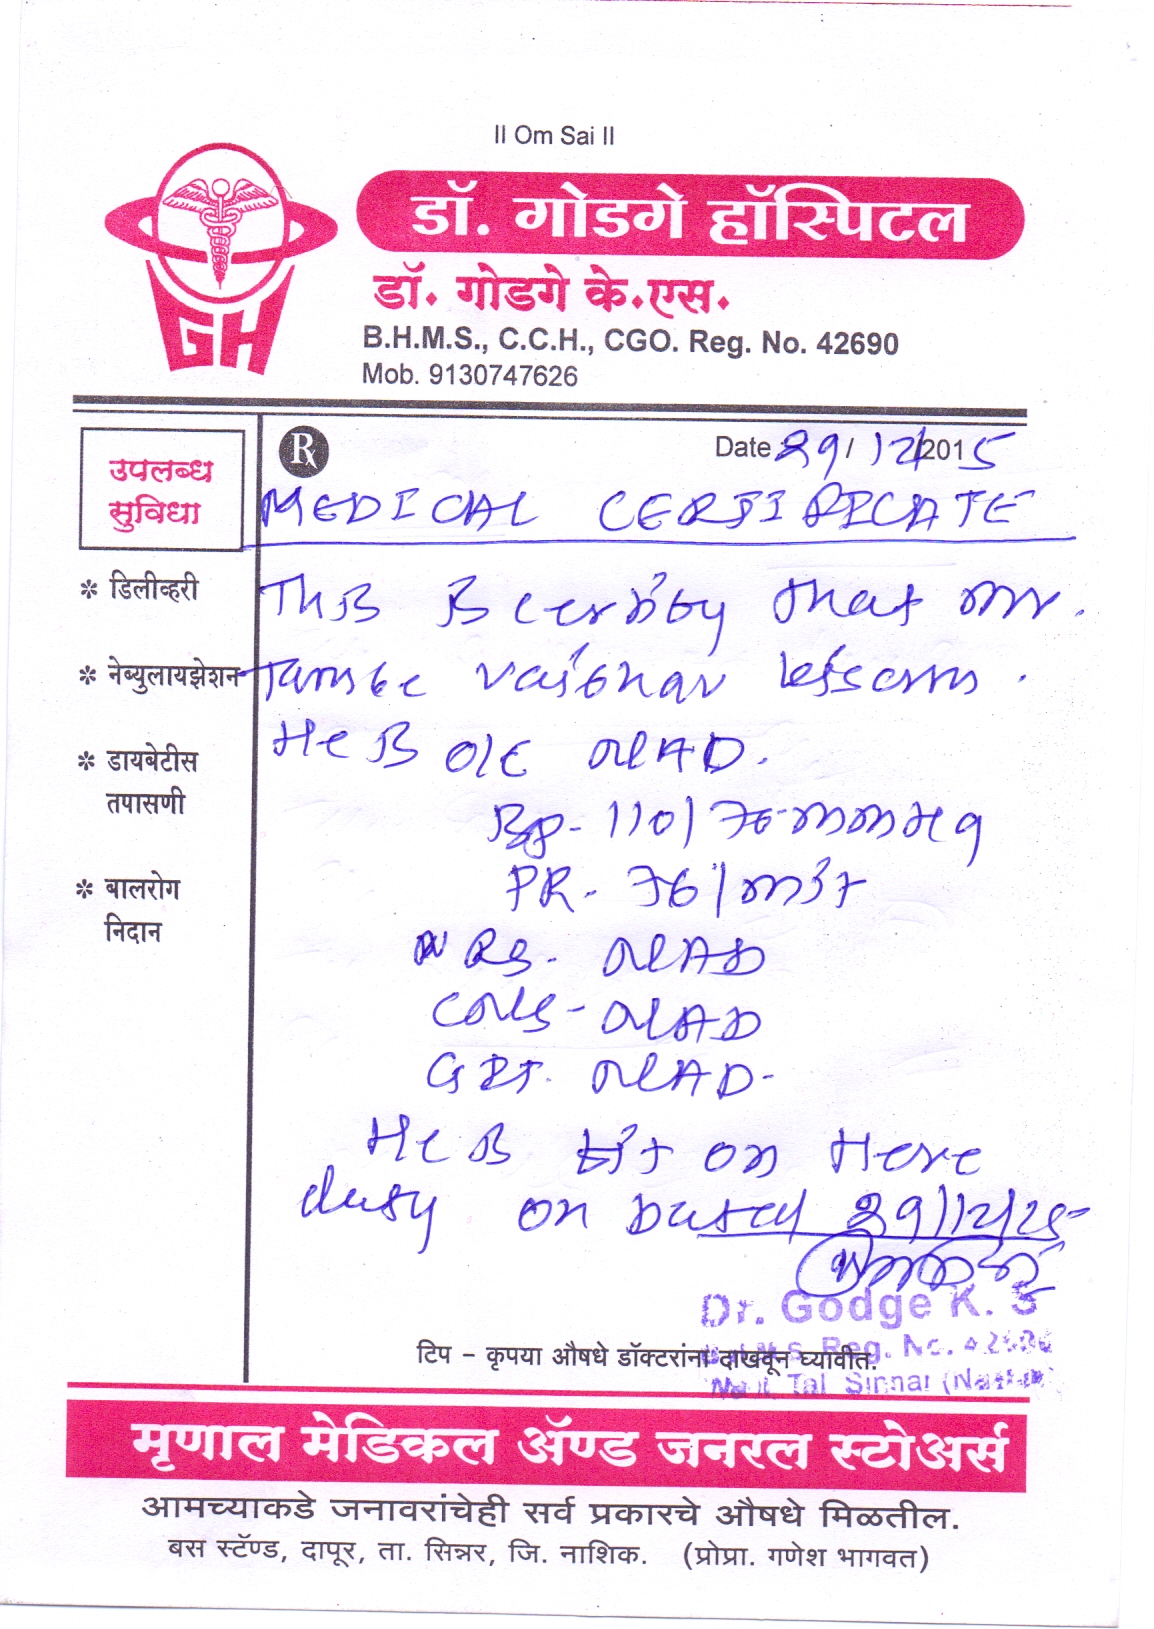 ॥ Om Sai ॥
डॉ. गोडगे हॉस्पिटल
डॉ. गोडगे के.एस.
B.H.M.S., C.C.H., CGO. Reg. No. 42690
Mob. 9130747626
GH
उपलब्ध
सुविधा
* डिलीव्हरी
* नेब्युलायझेशन
* डायबेटीस
तपासणी
* बालरोग
निदान
Rx
Date 29/12/2015
MEDICAL CERTIFICATE
This is certify that Mr.
Tambe Vaibhav
He is O/E NAD.
Bp - 110/76 mmHg
PR - 76/mit
RS - NAD
CNS - NAD
NAD -
He is fit on Here
duty on dated 29/12/25
Dr. Godge K. S
Reg. No. 42690
Tal Sinnar (Nashik)
टिप – कृपया औषधे डॉक्टरांना दाखवून घ्यावीत.
मृणाल मेडिकल ॲण्ड जनरल स्टोअर्स
आमच्याकडे जनावरांचेही सर्व प्रकारचे औषधे मिळतील.
बस स्टॅण्ड, दापूर, ता. सिन्नर, जि. नाशिक. (प्रोप्रा. गणेश भागवत)